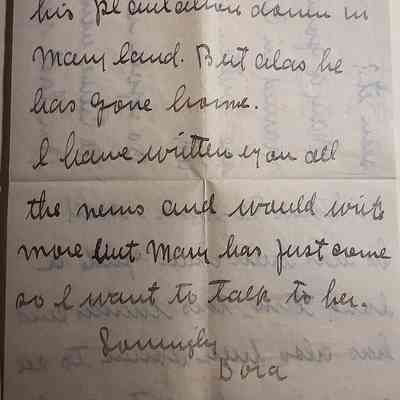 his plantation down in
Mary land. But alas he
has gone home.
I have written you all
the news and would write
more but Mary has just come
so I want to talk to her.
Lovingly
Dora